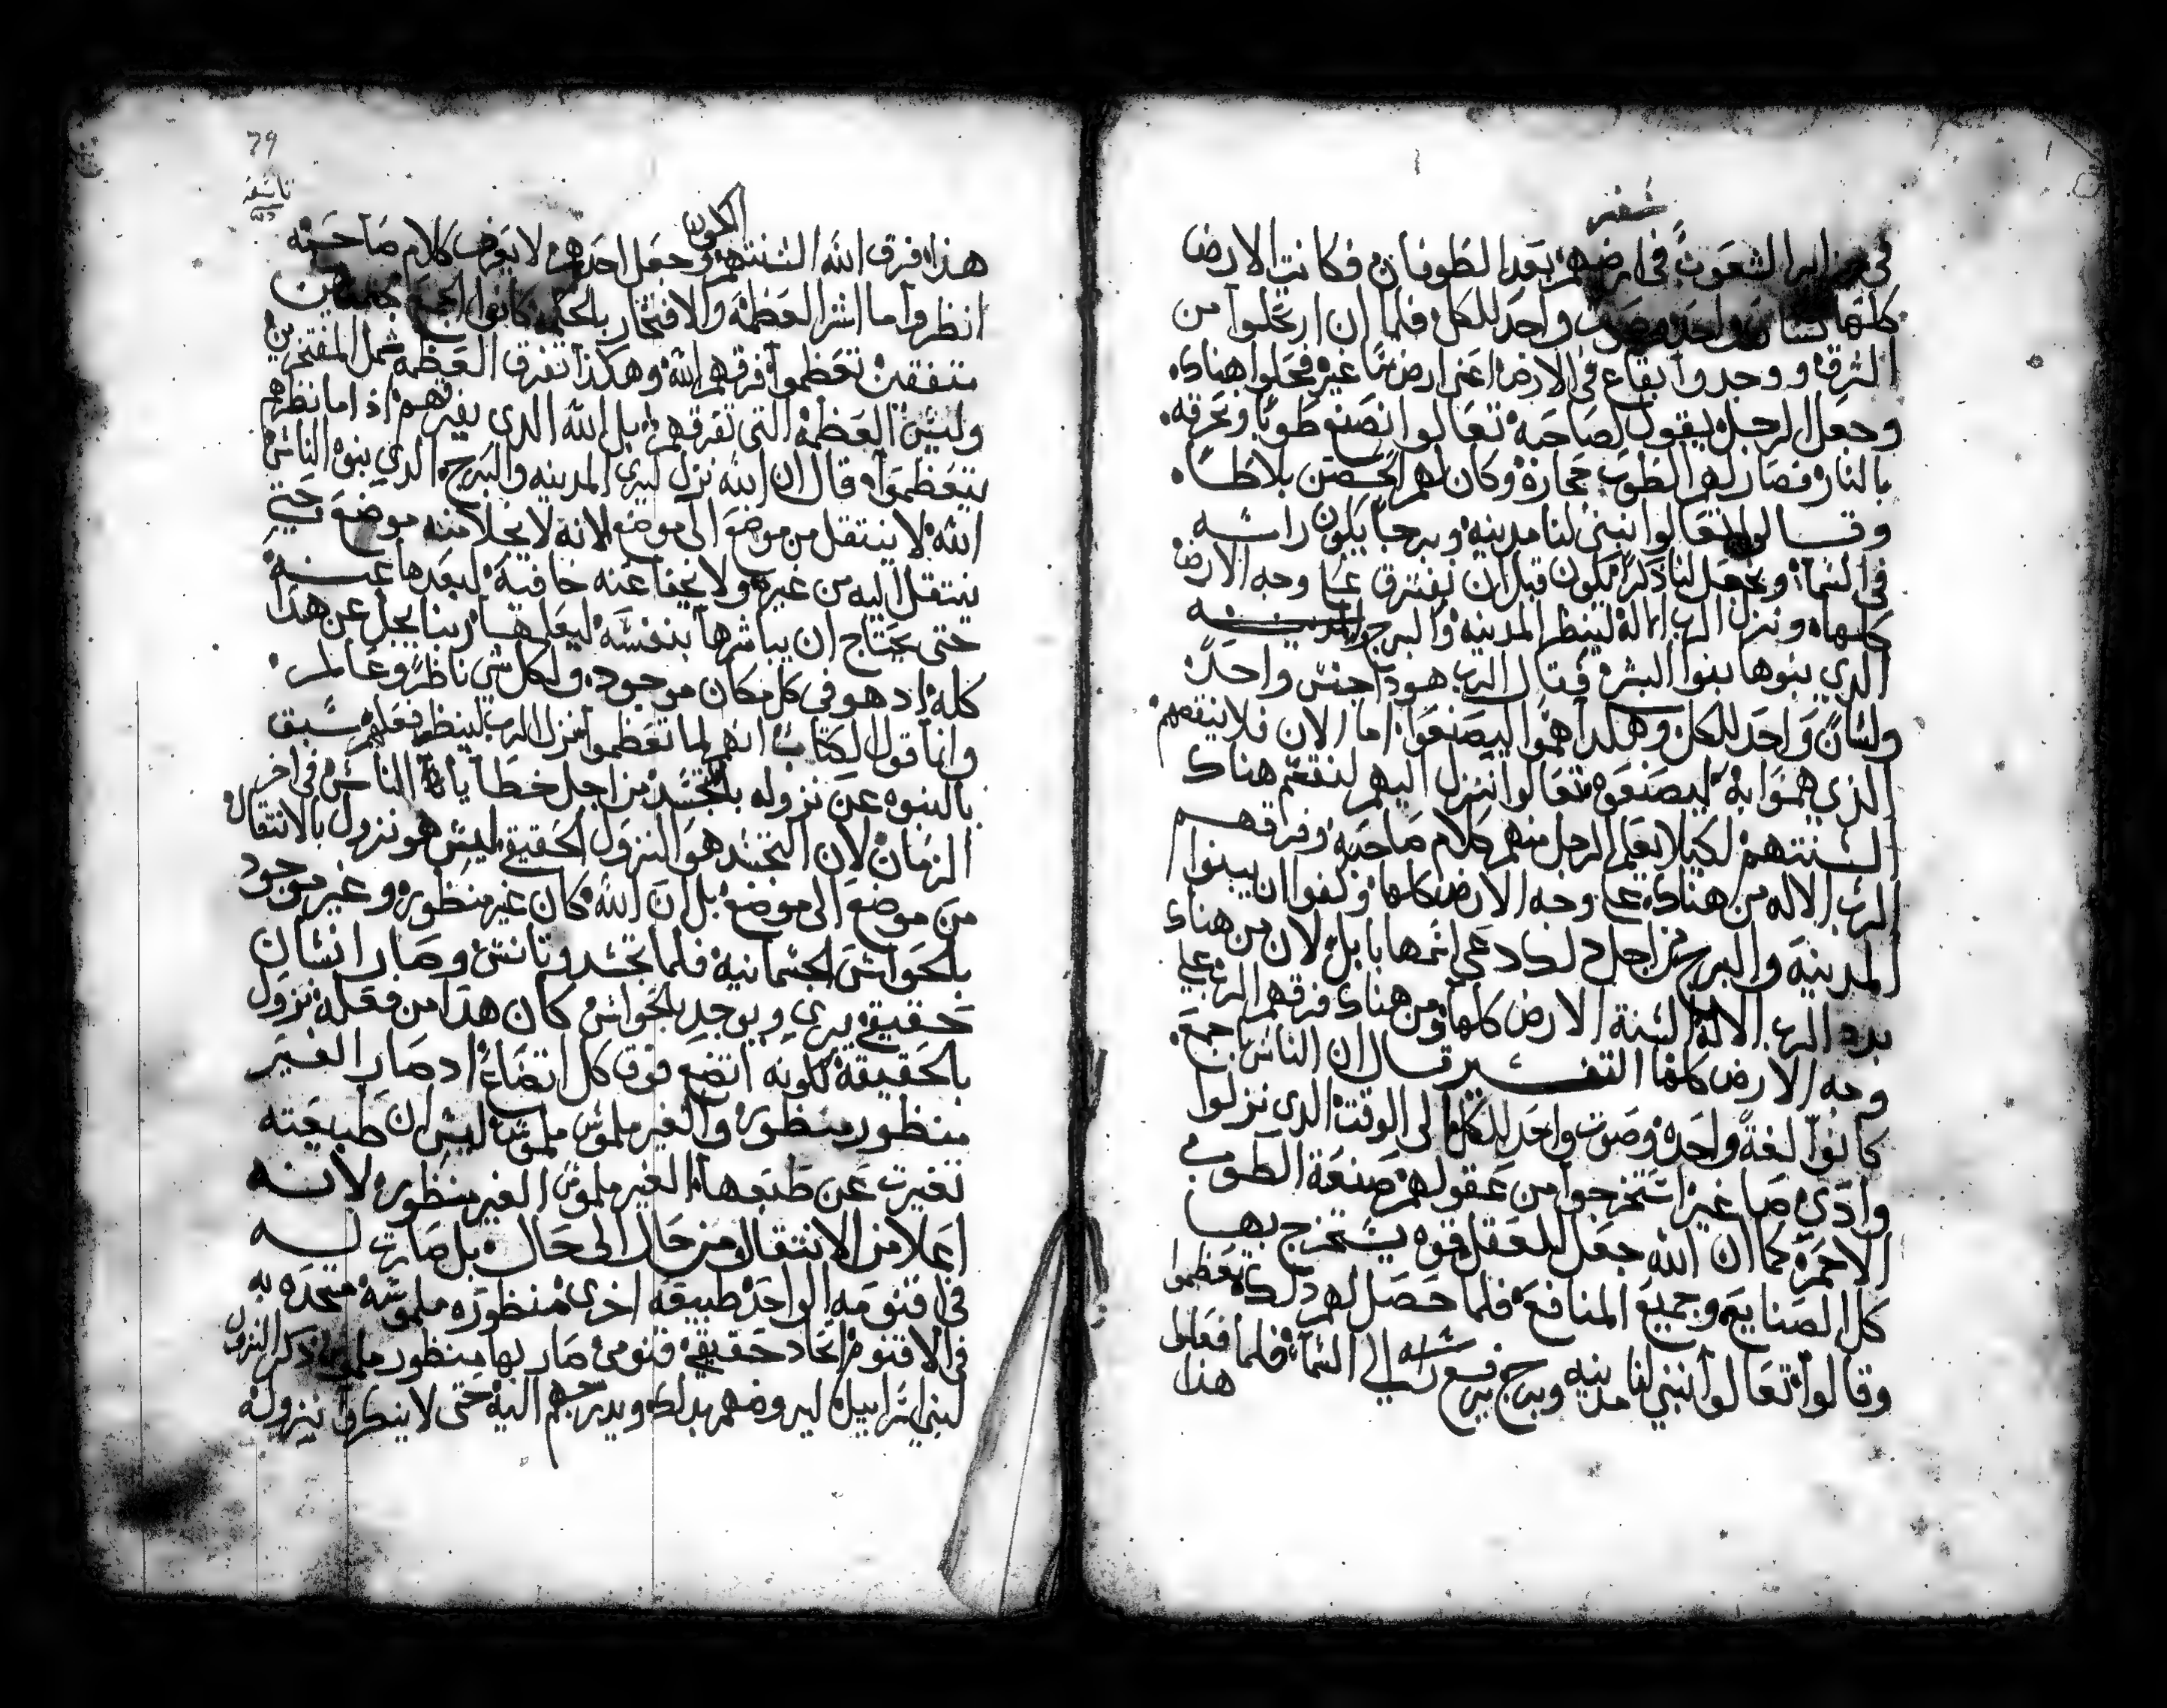 سفر
في جزاير الشعوب في ارضهم بعد الطوفان فكانت الارض
كلها لسان واحد وصوت واحد للكل فلما ان ارتحلوا من
الشرق ووجدوا بقاع في الارض اعني ارض شنا غير فحلوا هناك
وجعل الرجل يقول لصاحبه تعالوا نصنع طوبا ونحرقه
بالنار فصار لهم الطوب حجاره وكان لهم الحصن بلاطا
وقالوا تعالوا نبني لنا مدينه وبرجا يكون راسه
في السما ونجعل لنا ذكرا يكون قبل ان نفترق علي وجه الارض
كلها ونزل الرب الاله لينظر المدينه والبرج
الدي بنوها بنوا البشر وقال الرب هودا جنس واحد
ولسان واحد للكل وهكدا هموا ليصنعوا اما الان فلا ينقصهم
الذي هموا به ليصنعوه تعالوا ننزل اليهم لنقسم هناك
السنتهم لكيلا يعلم الرجل منهم كلام صاحبه وفرقهم
الرب الاله من هناك علي وجه الارض كلها وكفوا ان يبنوا
المدينه والبرج من اجل دلك دعي اسمها بابل لان من هناك
بدد الرب الاله السنة الارض كلها ومن هناك فرقهم الرب علي
وجه الارض كلها التفسير قال ان الناس اجمع
كانوا لغة واحده وصوت واحد للكل الي الوقت الدي نزلوا
وادي صاغير استخرجوا من عقولهم صنعة الطوب
الاحمر كما ان الله جعل للعقل قوه يستخرج بها
كل الصنايع وجميع المنافع فلما حصل لهم دلك تعظموا
وقالوا تعالوا نبني لنا مدينه وبرج يرفع راسه الي السما فلما فعلوا
هذا
79
تاسعه
التكوين
هذا فرق الله السنتهم وجعل احدهم لا يعرف كلام صاحبه
انظروا ما اشر العظمة والافتخار بالحكمه كانوا الجميع مجتمعين
متفقين تعظموا فرقهم الله وهكذا تفرق العظمة شمل المفتخرين
وليس العظمة التي تفرقهم بل الله الدي يفرقهم اذ اما نظرهم
يتعظموا قال ان الله نزل ليري المدينه والبرج الدي بنوه الناس
الله لا ينتقل من موضع الي موضع لانه لا يخلا منه موضع حتي
ينتقل اليه من غيره ولا يخفا عنه خافية لبعدها عنه
حتي يحتاج ان يباشرها بنفسه ليعلمها ربنا يجل عن هدا
كله اد هو في كل مكان موجود ولكل شي ناظر وعالم
وانما قول الكتاب انهم لما تعظموا نزل الرب لينظر فعلهم سبق
بالنبوه عن نزوله بالتجسد من اجل خطايا الناس في اخر
الزمان لان التجسد هو النزول الحقيقي ليس هو نزول بالانتقال
من موضع الي موضع بل ان الله كان غير منظور وغير موجود
بالحواس الجسمانية فلما تجسد وتانس وصار انسان
حقيقي يري ويوجد بالحواس كان هدا من فعله نزول
بالحقيقة لكونه اتضع فوق كل اتضاع اد صار الغير
منظور منظور والغير ملموس ملموس ليس ان طبيعته
تغيرت عن طبعها الغير ملموس الغير منظور لانه
اعلا من الانتقال من حال الي حال بل صارت له
في اقنومه الواحد طبيعه اخري منظوره ملموسه متحده به
في الاقنوم اتحاد حقيقي قنومي صار بها منظور ملموس ذكر النزول
لبني اسراييل ليروضهم بدلك ويدرجهم اليه حتي لا ينكروا نزوله